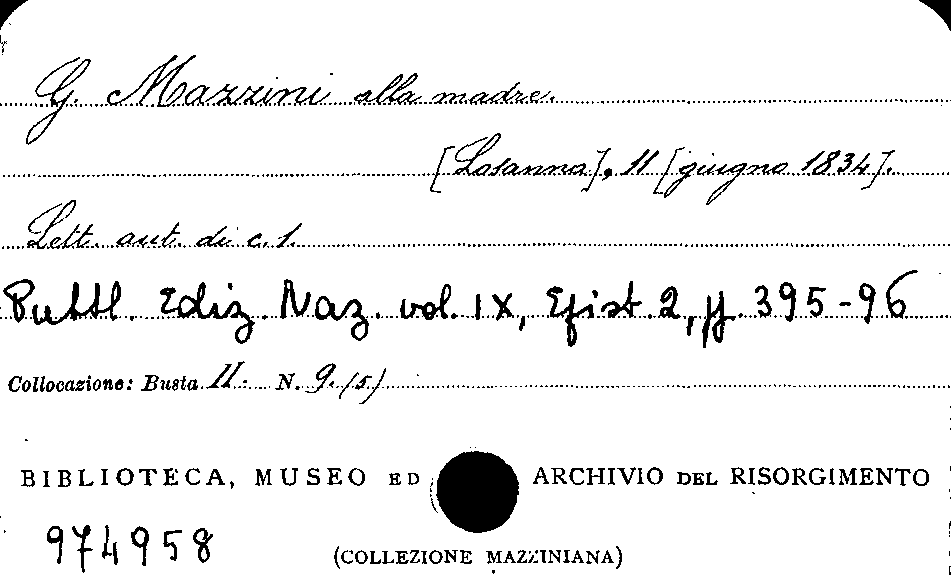 G. Mazzini alla madre.
[Losanna], 11 [giugno 1834].
Lett. aut. di c. 1.
Pubbl. Ediz. Naz. vol. IX, Epist. 2, pp. 395-96
Collocazione: Busta II. N. 9. (5)
BIBLIOTECA, MUSEO ED ARCHIVIO DEL RISORGIMENTO
974958
(COLLEZIONE MAZZINIANA)